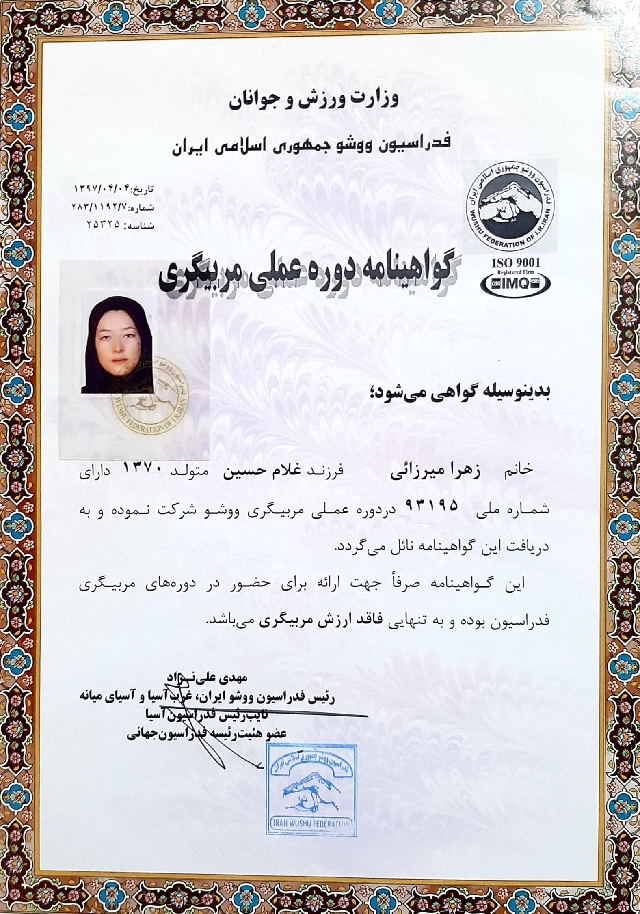 وزارت ورزش و جوانان
فدراسیون ووشو جمهوری اسلامی ایران
تاریخ: ۱۳۹۷/۰۴/۰۴
شماره: ۲۸۳/۱۱۹۲/۷
شناسه: ۲۵۳۲۵
فدراسیون ووشو جمهوری اسلامی ایران
WUSHU FEDERATION OF I.R.IRAN
ISO 9001
Registered Firm
IMQ
گواهینامه دوره عملی مربیگری
WUSHU FEDERATION OF I.R.IRAN
بدینوسیله گواهی می‌شود؛
خانم زهرا میرزائی فرزند غلام حسین متولد ۱۳۷۰ دارای
شماره ملی ۹۳۱۹۵ دردوره عملی مربیگری ووشو شرکت نموده و به
دریافت این گواهینامه نائل می‌گردد.
این گواهینامه صرفاً جهت ارائه برای حضور در دوره‌های مربیگری
فدراسیون بوده و به تنهایی فاقد ارزش مربیگری می‌باشد.
مهدی علی‌نژاد
رئیس فدراسیون ووشو ایران، غرب آسیا و آسیای میانه
نایب‌رئیس فدراسیون آسیا
عضو هئیت‌رئیسه فدراسیون‌جهانی
فدراسیون ووشو جمهوری اسلامی ایران
IRAN WUSHU FEDERATION